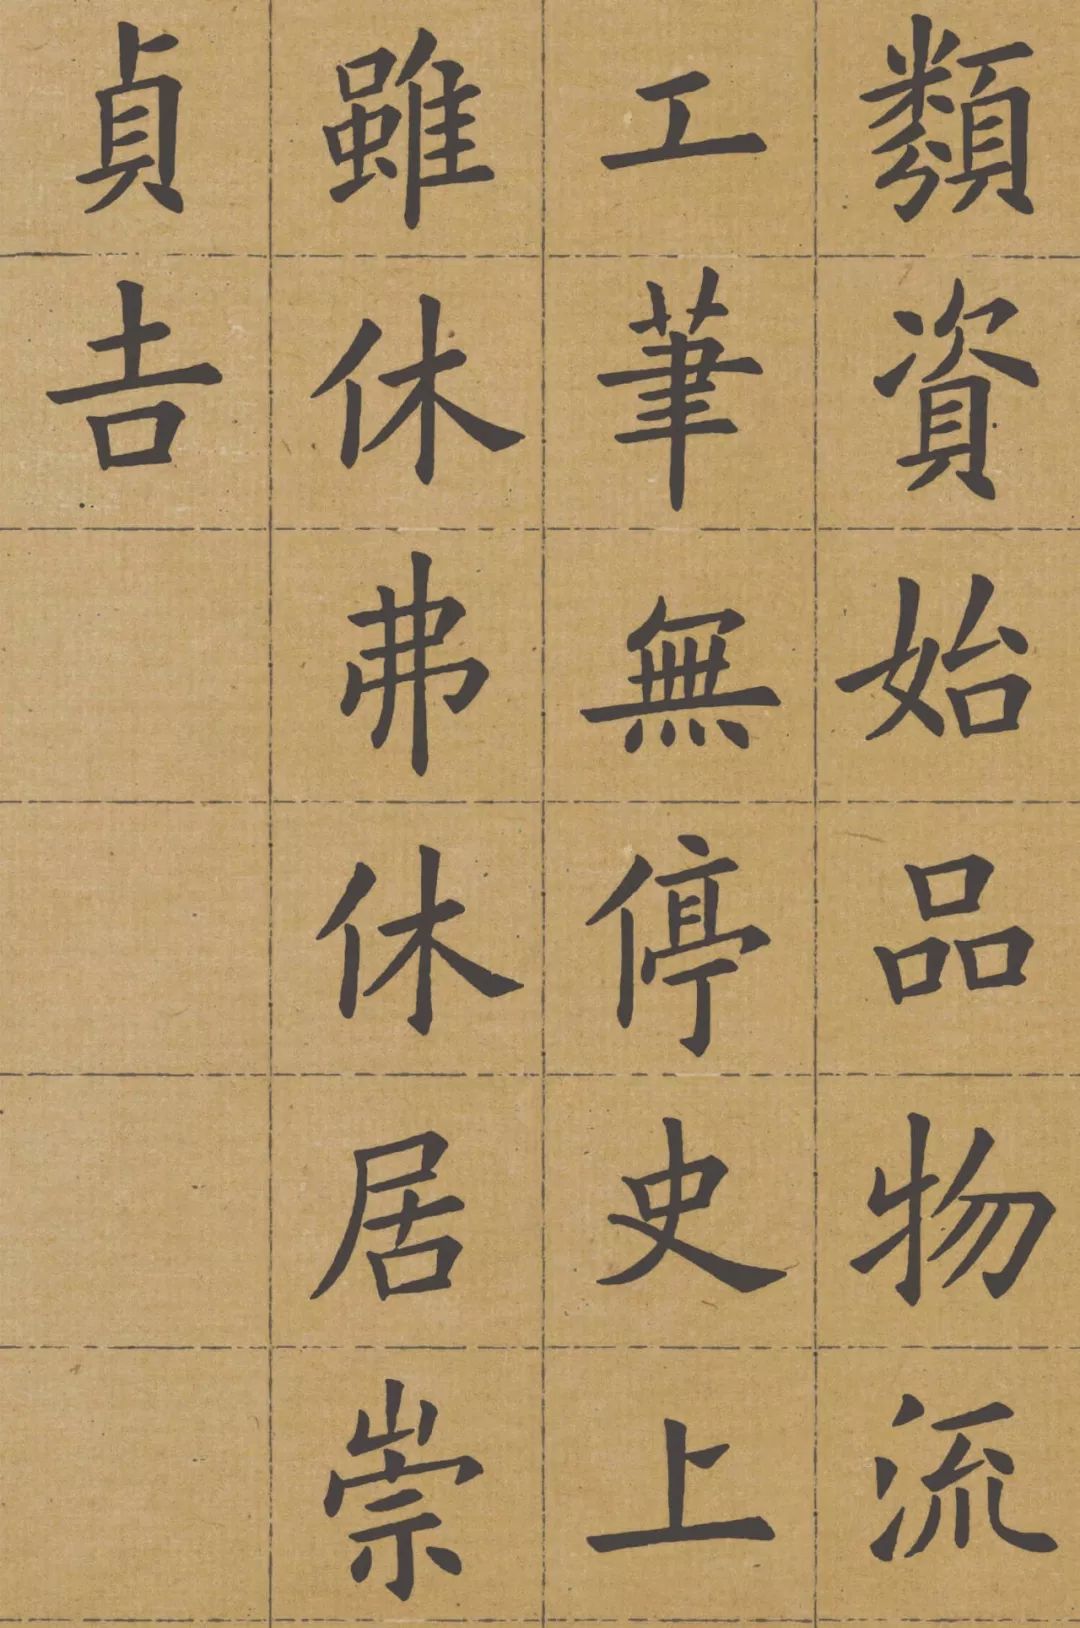 類資始品物流
工筆無停史上
雖休弗休居崇
貞吉